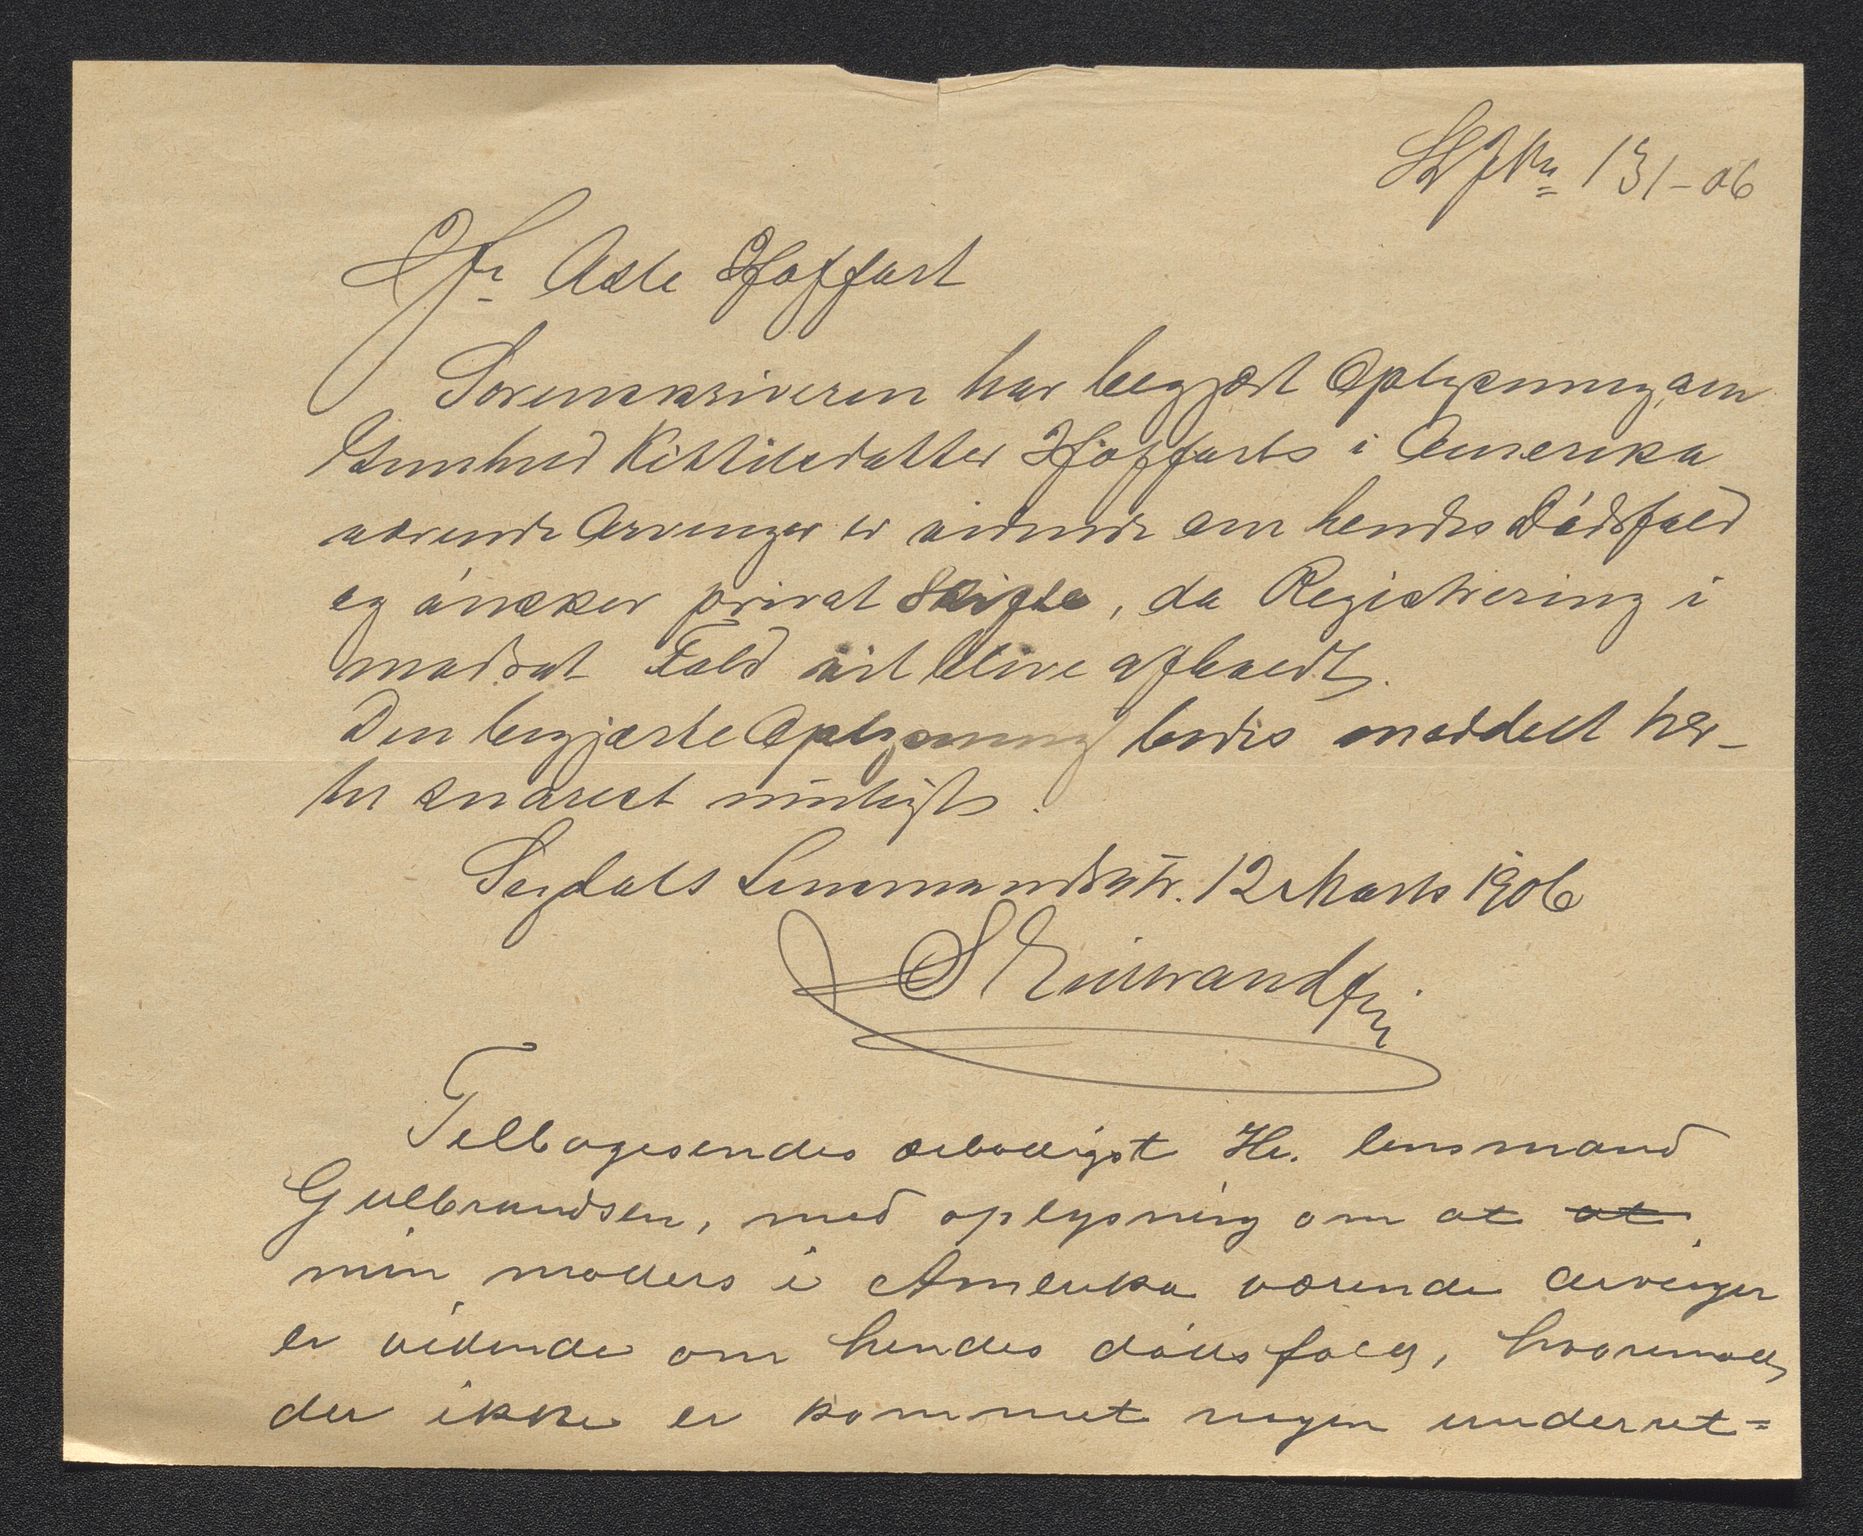 JNr 131-06
Hr Asle Hoffart
Sorenskriveren har begjært Oplysning om
Gunhild Kittilsdatter Hoffarts i Amerika
værende Arvinger er vidende om hendes Dödsfald
og önsker privat Skifte, da Registrering i
modsat Fald vil blive afholdt.
Den begjærte Oplysning bedes meddelt her-
til snarest muligst.
Sigdals Lensmandsktr. 12 Marts 1906
S Gulbrandsen
Tilbagesendes ærbødigst Hr. lensmand
Gulbrandsen, med oplysning om at at
min moders i Amerika værende arvinger
er vidende om hendes dödsfald, hvorimod
der ikke er kommet nogen underret=